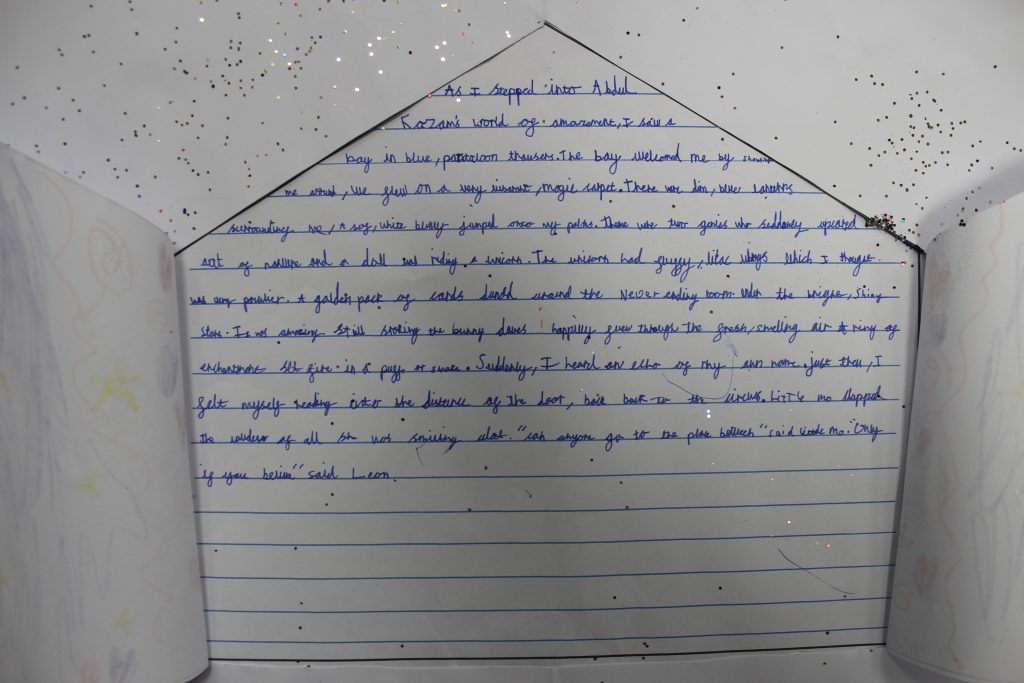 As I stepped into Abdul
Kazam's world of amazement, I saw a
boy in blue, pantaloon thausers. The boy welcomed me by showing
me around, we flew on a very vibrant, magic carpet. There were dim, blue lanterns
surrounding me, A soft, white bunny jumped onto my palms. There were two genies who suddenly
out of and a doll was riding a unicorn. The unicorn had fuzzy, lilac wings which I thought
was very peculier. A golden pack of cards around the Never ending room under the bright, shiny
stars. It was amazing. Still the bunny doves happiley flew through the fresh, smelling air A ring of
set fire in a puff of smoke. Suddenly, I heard an echo of my own name. just then, I
felt myself heading into the distance of the door, back to the circus. Little mo clapped
the loudest of all she was smiling alot. "can anyone go to the place between" said little mo. "Only
if you believe" said Leon.